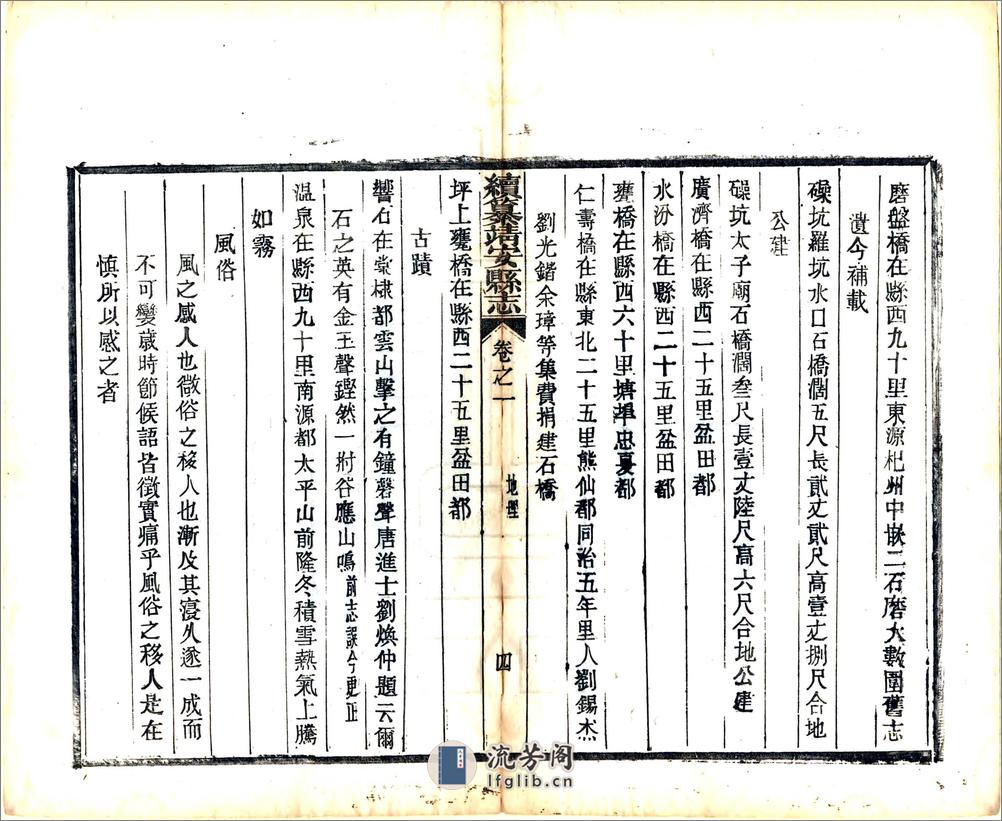 磨盤橋在縣西九十里東源杞州中嵌二石磨大數圍舊志
遺今補載
磉坑羅坑水口石橋濶五尺長貳丈貳尺高壹丈捌尺合地
公建
磉坑太子廟石橋濶叁尺長壹丈陸尺高六尺合地公建
廣濟橋在縣西二十五里盆田都
水汾橋在縣西二十五里盆田都
甕橋在縣西六十里塘忠夏都
仁壽橋在縣東北二十五里熊仙都同治五年里人劉錫杰
劉光鍇余璋等集費捐建石橋
續纂靖安縣志
卷之一
地理
四
坪上甕橋在縣西二十五里盆田都
古蹟
響石在棠棣都雲山擊之有鐘磬聲唐進士劉煥仲題云爾
石之英有金玉聲鏗然一拊谷應山鳴前志誤今更正
温泉在縣西九十里南源都太平山前隆冬積雪熱氣上騰
如霧
風俗
風之感人也微俗之移人也漸及其寖久遂一成而
不可變歲時節候語皆徵實痛乎風俗之移人是在
慎所以感之者
流芳阁
lfglib.cn